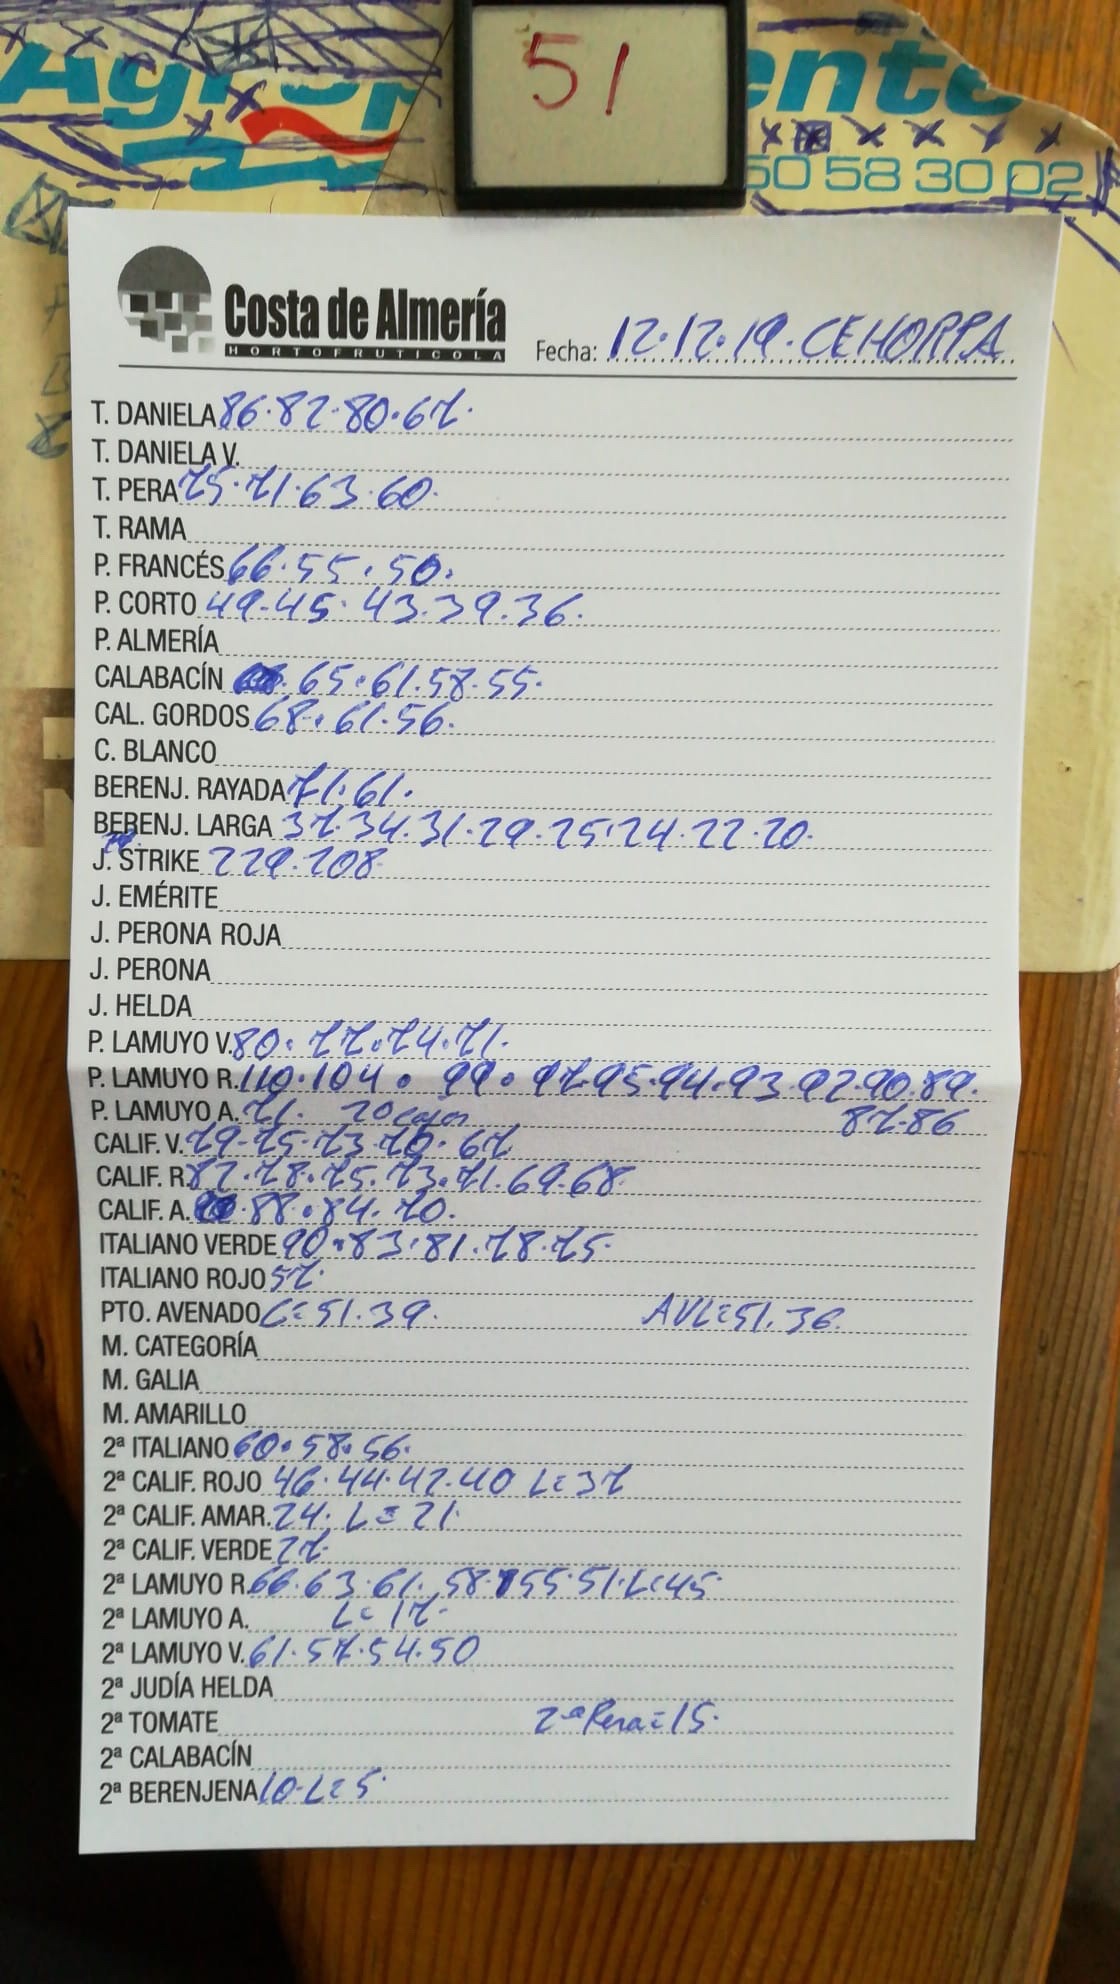 51
50 58 30 02
Costa de Almería
HORTOFRUTICOLA
Fecha: 12.12.19. CEHORPA
T. DANIELA 86.82.80.67.
T. DANIELA V.
T. PERA 75.71.63.60.
T. RAMA
P. FRANCÉS 66.55.50.
P. CORTO 49-45. 43.39.36.
P. ALMERÍA
CALABACÍN 65.61.58.55.
CAL. GORDOS 68.61.56.
C. BLANCO
BERENJ. RAYADA 71.61.
BERENJ. LARGA 37.34.31.29.25.24.22.20.
J. STRIKE 229.208
J. EMÉRITE
J. PERONA ROJA
J. PERONA
J. HELDA
P. LAMUYO V. 80.77.74.71.
P. LAMUYO R. 110.104.99.97.95.94.93.92.90.89.
P. LAMUYO A. 71. 20 cajas 87.86
CALIF. V. 79.75.73.70.67
CALIF. R. 82.78.75.73.71.69.68
CALIF. A. 88.84.70.
ITALIANO VERDE 90.83.81.78.75.
ITALIANO ROJO 57.
PTO. AVENADO C=51.39. AVL=51.36.
M. CATEGORÍA
M. GALIA
M. AMARILLO
2ª ITALIANO 60.58.56.
2ª CALIF. ROJO 46.44.42.40 L=37
2ª CALIF. AMAR. 24. L=21.
2ª CALIF. VERDE 27.
2ª LAMUYO R. 66.63.61.58.55.51.L=45
2ª LAMUYO A. L=17.
2ª LAMUYO V. 61.57.54.50
2ª JUDÍA HELDA
2ª TOMATE 2ª Pera=15.
2ª CALABACÍN
2ª BERENJENA 10.L=5.